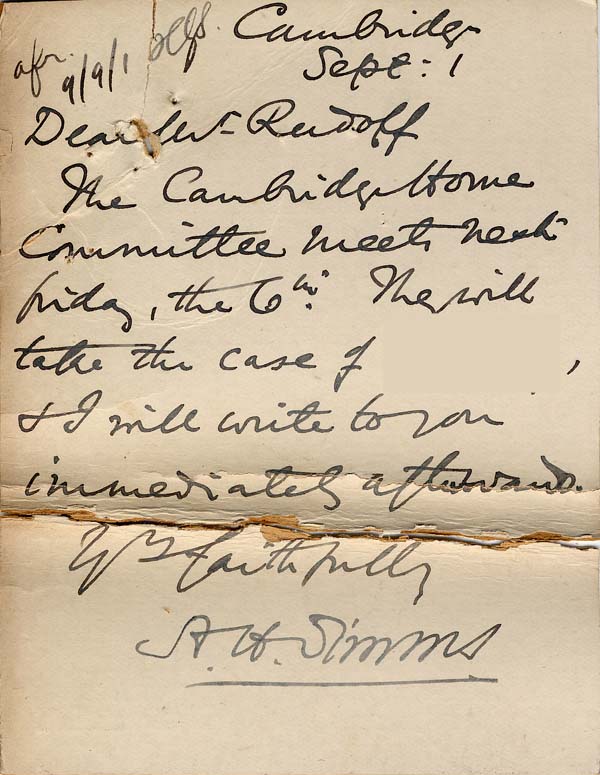 Cambridge
Sept: 1
9/9/1
Dear Mr Rudolf
The Cambridge Home
Committee meets next
friday, the 6th. They will
take the case of ,
& I will write to you
immediately afterwards.
Yrs faithfully
A. H. Simms